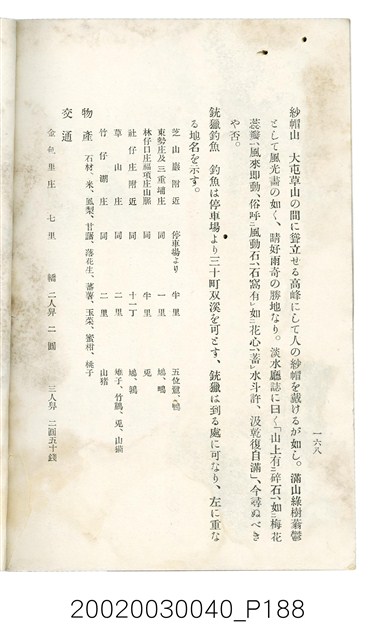 一六八
紗帽山　大屯草山の間に聳立せる高峰にして人の紗帽を戴けるが如し。滿山綠樹蓊鬱
として風光畵の如く、晴好雨奇の勝地なり。淡水廳誌に曰く「山上有碎石、如梅花
蕊瓣、風來即動、俗呼風動石、石窩有如花心、蓄水斗許、汲乾復自滿」、今尋ぬべき
や否。
銃獵釣魚　釣魚は停車場より三十町双溪を可とす、銃獵は到る處に可なり、左に重な
る地名を示す。
芝山巖附近　停車場より　半里　五位鷺、鴨
東勢庄及三重埔庄　同　一里　鳩、鴫
林仔口庄福項庄山脚　同　半里　兎
社仔庄附近　同　十一丁　鳩、鴉
草山庄　同　二里　雉子、竹鷄、兎、山猫
竹仔湖庄　同　二里　山猪
物產　石材、米、鳳梨、甘藷、落花生、蕃薯、玉菜、蜜柑、桃子
交通
金包里庄　七里　轎　二人舁　二圓　三人舁　二圓五十錢
20020030040_P188